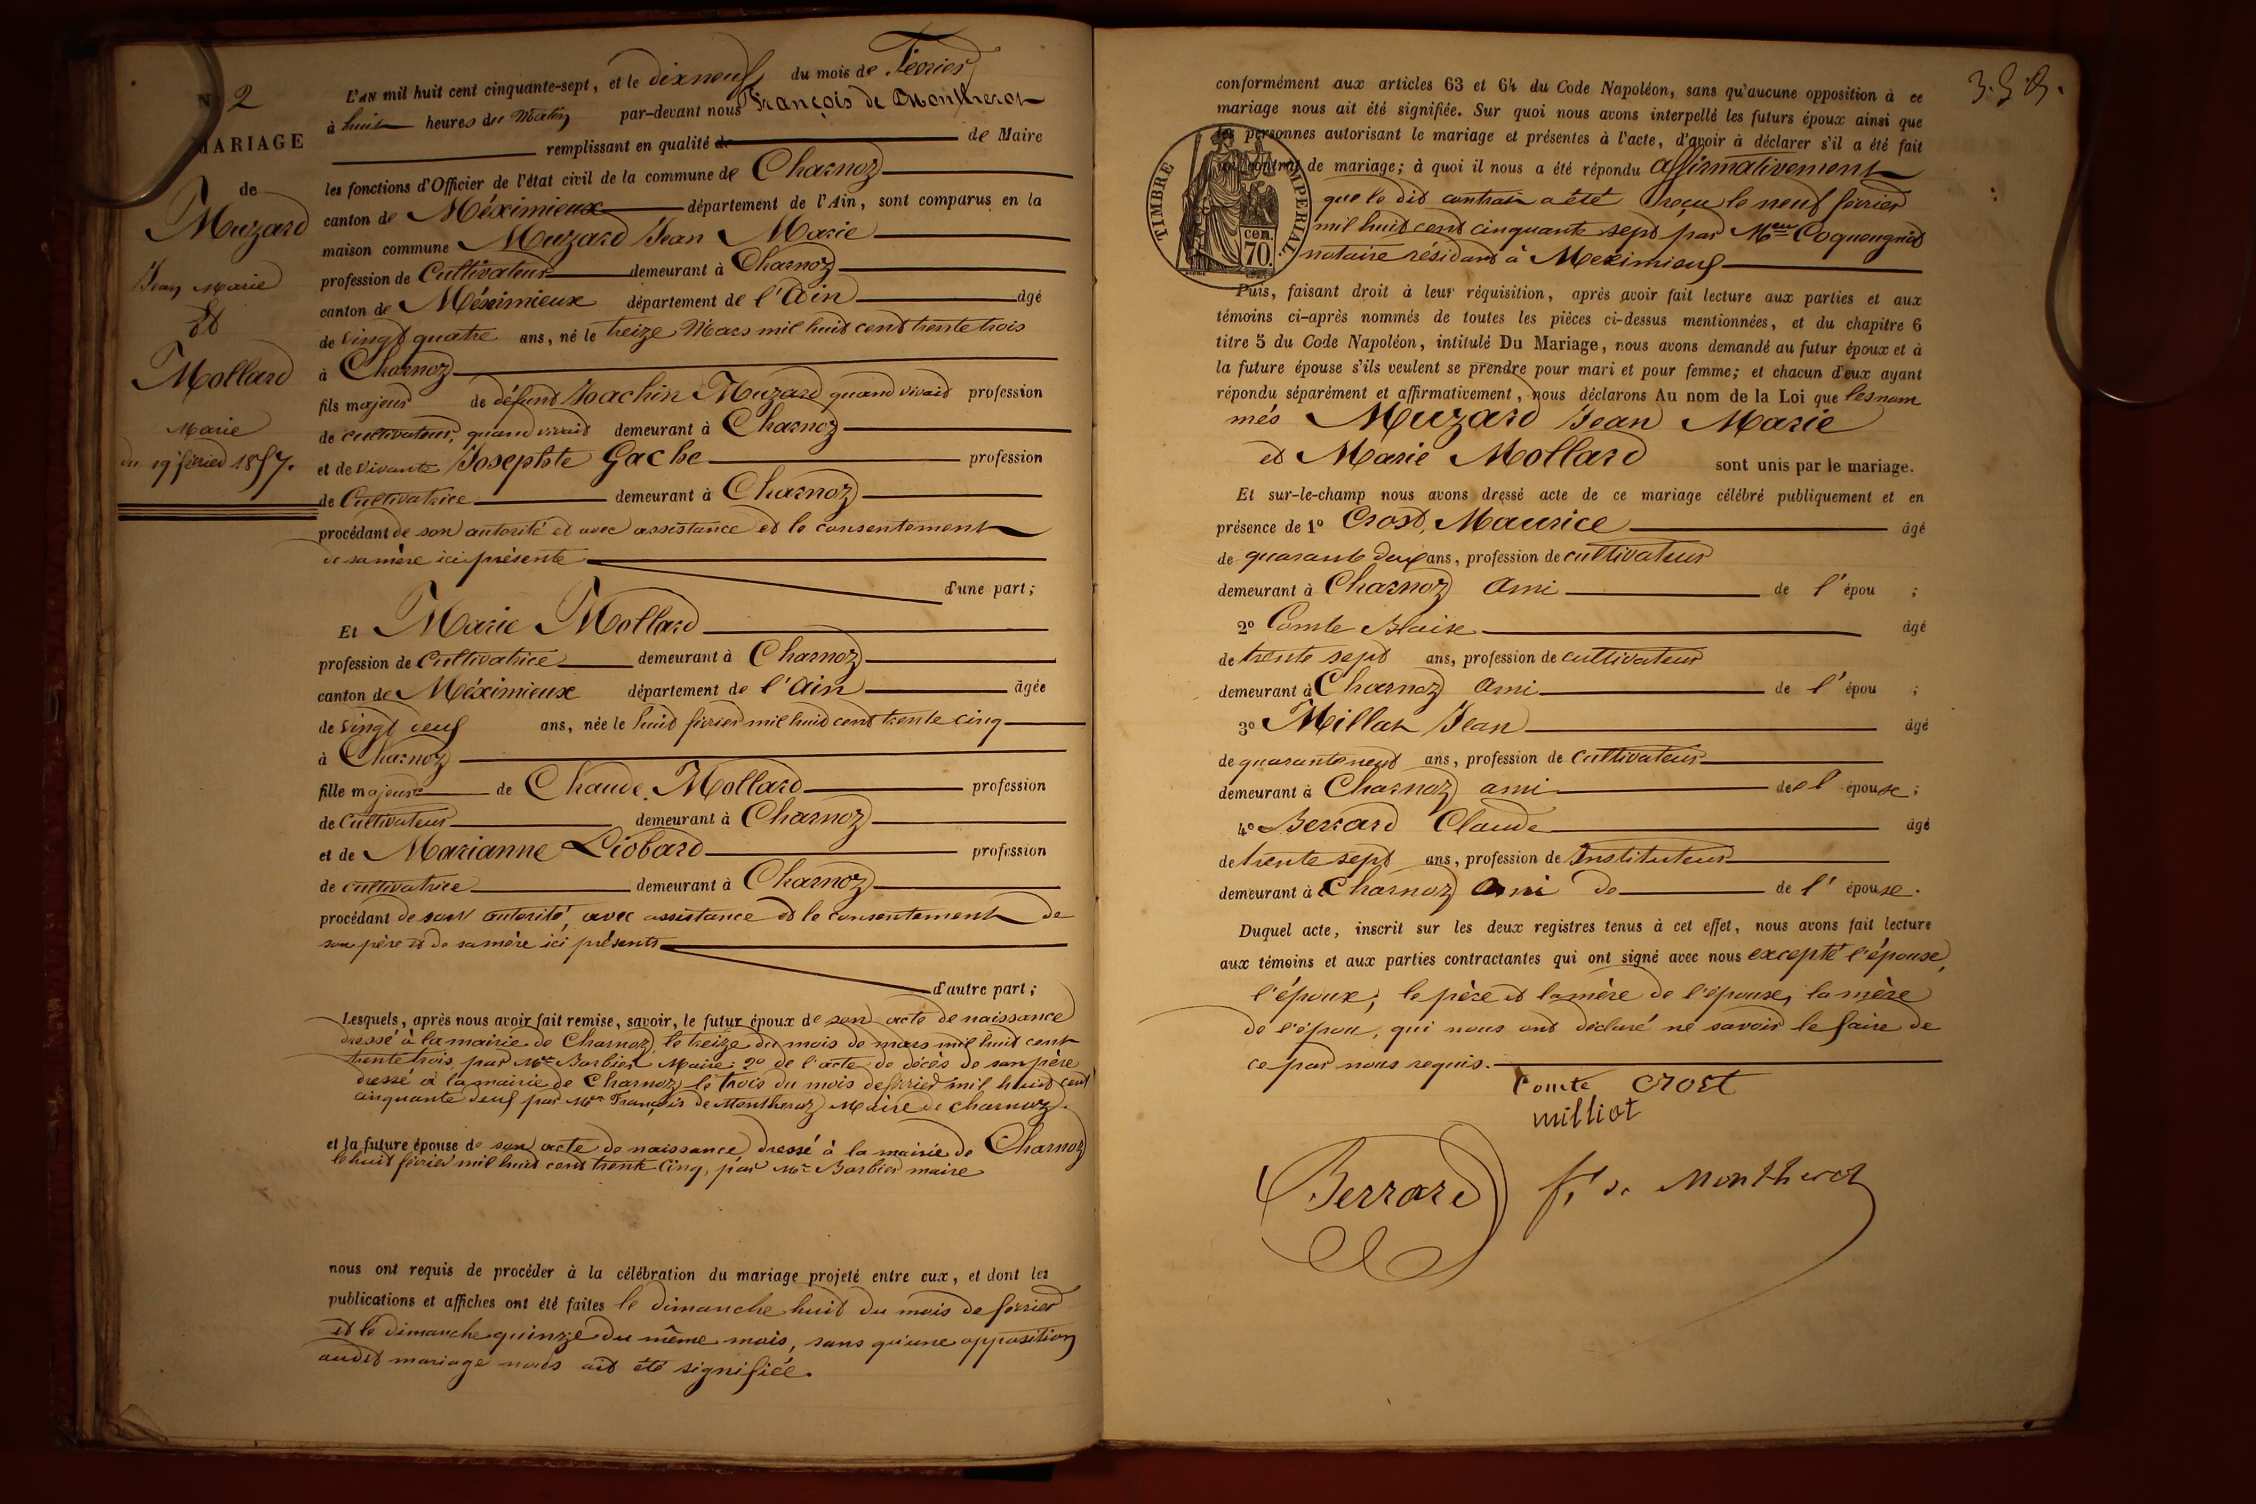 N 2
MARIAGE
de
Muzard
Jean Marie
Et
Mollard
Marie
du 19 février 1857.
L'AN mil huit cent cinquante-sept, et le dixneuf du mois de Février
à huit heures du Matin par-devant nous François de Montherot
remplissant en qualité de de Maire
les fonctions d'Officier de l'état civil de la commune de Charnoz
canton de Méximieux département de l'Ain, sont comparus en la
maison commune Muzard Jean Marie
profession de Cultivateur demeurant à Charnoz
canton de Méximieux département de l'Ain âgé
de vingt quatre ans, né le treize Mars mil huit cent trente trois
à Charnoz
fils majeur de défunt Joachin Muzard quand vivait profession
de cultivateur, quand vivait demeurant à Charnoz
et de vivante Josephte Gache profession
de Cultivatrice demeurant à Charnoz
procédant de son autorité et avec assistance et le consentement
de sa mère ici présente
d'une part;
Et Marie Mollard
profession de Cultivatrice demeurant à Charnoz
canton de Méximieux département de l'Ain âgée
de vingt deux ans, née le huit février mil huit cent trente cinq
à Charnoz
fille majeure de Claude Mollard profession
de Cultivateur demeurant à Charnoz
et de Marianne Liobard profession
de cultivatrice demeurant à Charnoz
procédant de son autorité, avec assistance et le consentement de
son père et de sa mère ici présents
d'autre part;
Lesquels, après nous avoir fait remise, savoir, le futur époux de son acte de naissance
dressé à la mairie de Charnoz le treize du mois de mars mil huit cent
trente trois par Mr Barbier Maire; 2° de l'acte de décès de son père
dressé à la mairie de Charnoz le trois du mois de février mil huit cent
cinquante deux par Mr François de Montheroz Maire de Charnoz.
et la future épouse de son acte de naissance dressé à la mairie de Charnoz
le huit février mil huit cent trente cinq, par Mr Barbier maire
nous ont requis de procéder à la célébration du mariage projeté entre eux, et dont les
publications et affiches ont été faites le dimanche huit du mois de février
et le dimanche quinze du même mois, sans qu'une opposition
audit mariage nous ait été signifiée.
conformément aux articles 63 et 64 du Code Napoléon, sans qu'aucune opposition à ce
mariage nous ait été signifiée. Sur quoi nous avons interpellé les futurs époux ainsi que
les personnes autorisant le mariage et présentes à l'acte, d'avoir à déclarer s'il a été fait
contrat de mariage; à quoi il nous a été répondu affirmativement
que le dit contrat a été reçu le neuf février
mil huit cent cinquante sept par Coquengniot
notaire résidant à Meximieux
TIMBRE IMPERIAL.
cen.
70.
Puis, faisant droit à leur réquisition, après avoir fait lecture aux parties et aux
témoins ci-après nommés de toutes les pièces ci-dessus mentionnées, et du chapitre 6
titre 5 du Code Napoléon, intitulé Du Mariage, nous avons demandé au futur époux et à
la future épouse s'ils veulent se prendre pour mari et pour femme; et chacun d'eux ayant
répondu séparément et affirmativement, nous déclarons Au nom de la Loi que les nom
més Muzard Jean Marie
et Marie Mollard sont unis par le mariage.
Et sur-le-champ nous avons dressé acte de ce mariage célébré publiquement et en
présence de 1° Crost, Maurice âgé
de quarante deux ans, profession de cultivateur
demeurant à Charnoz ami de l' épou ;
2° Comte Blaise âgé
de trente sept ans, profession de cultivateur
demeurant à Charnoz ami de l' épou ;
3° Millat Jean âgé
de quarante neuf ans, profession de Cultivateur
demeurant à Charnoz ami de l' épouse;
4° Berrard Claude âgé
de trente sept ans, profession de Instituteur
demeurant à Charnoz ami de de l' épouse.
Duquel acte, inscrit sur les deux registres tenus à cet effet, nous avons fait lecture
aux témoins et aux parties contractantes qui ont signé avec nous excepté l'épouse,
l'époux, le père et la mère de l'épouse, la mère
de l'époux, qui nous ont déclaré ne savoir le faire de
ce par nous requis.
Comte Crost
milliot
Berrard fs de Montherot